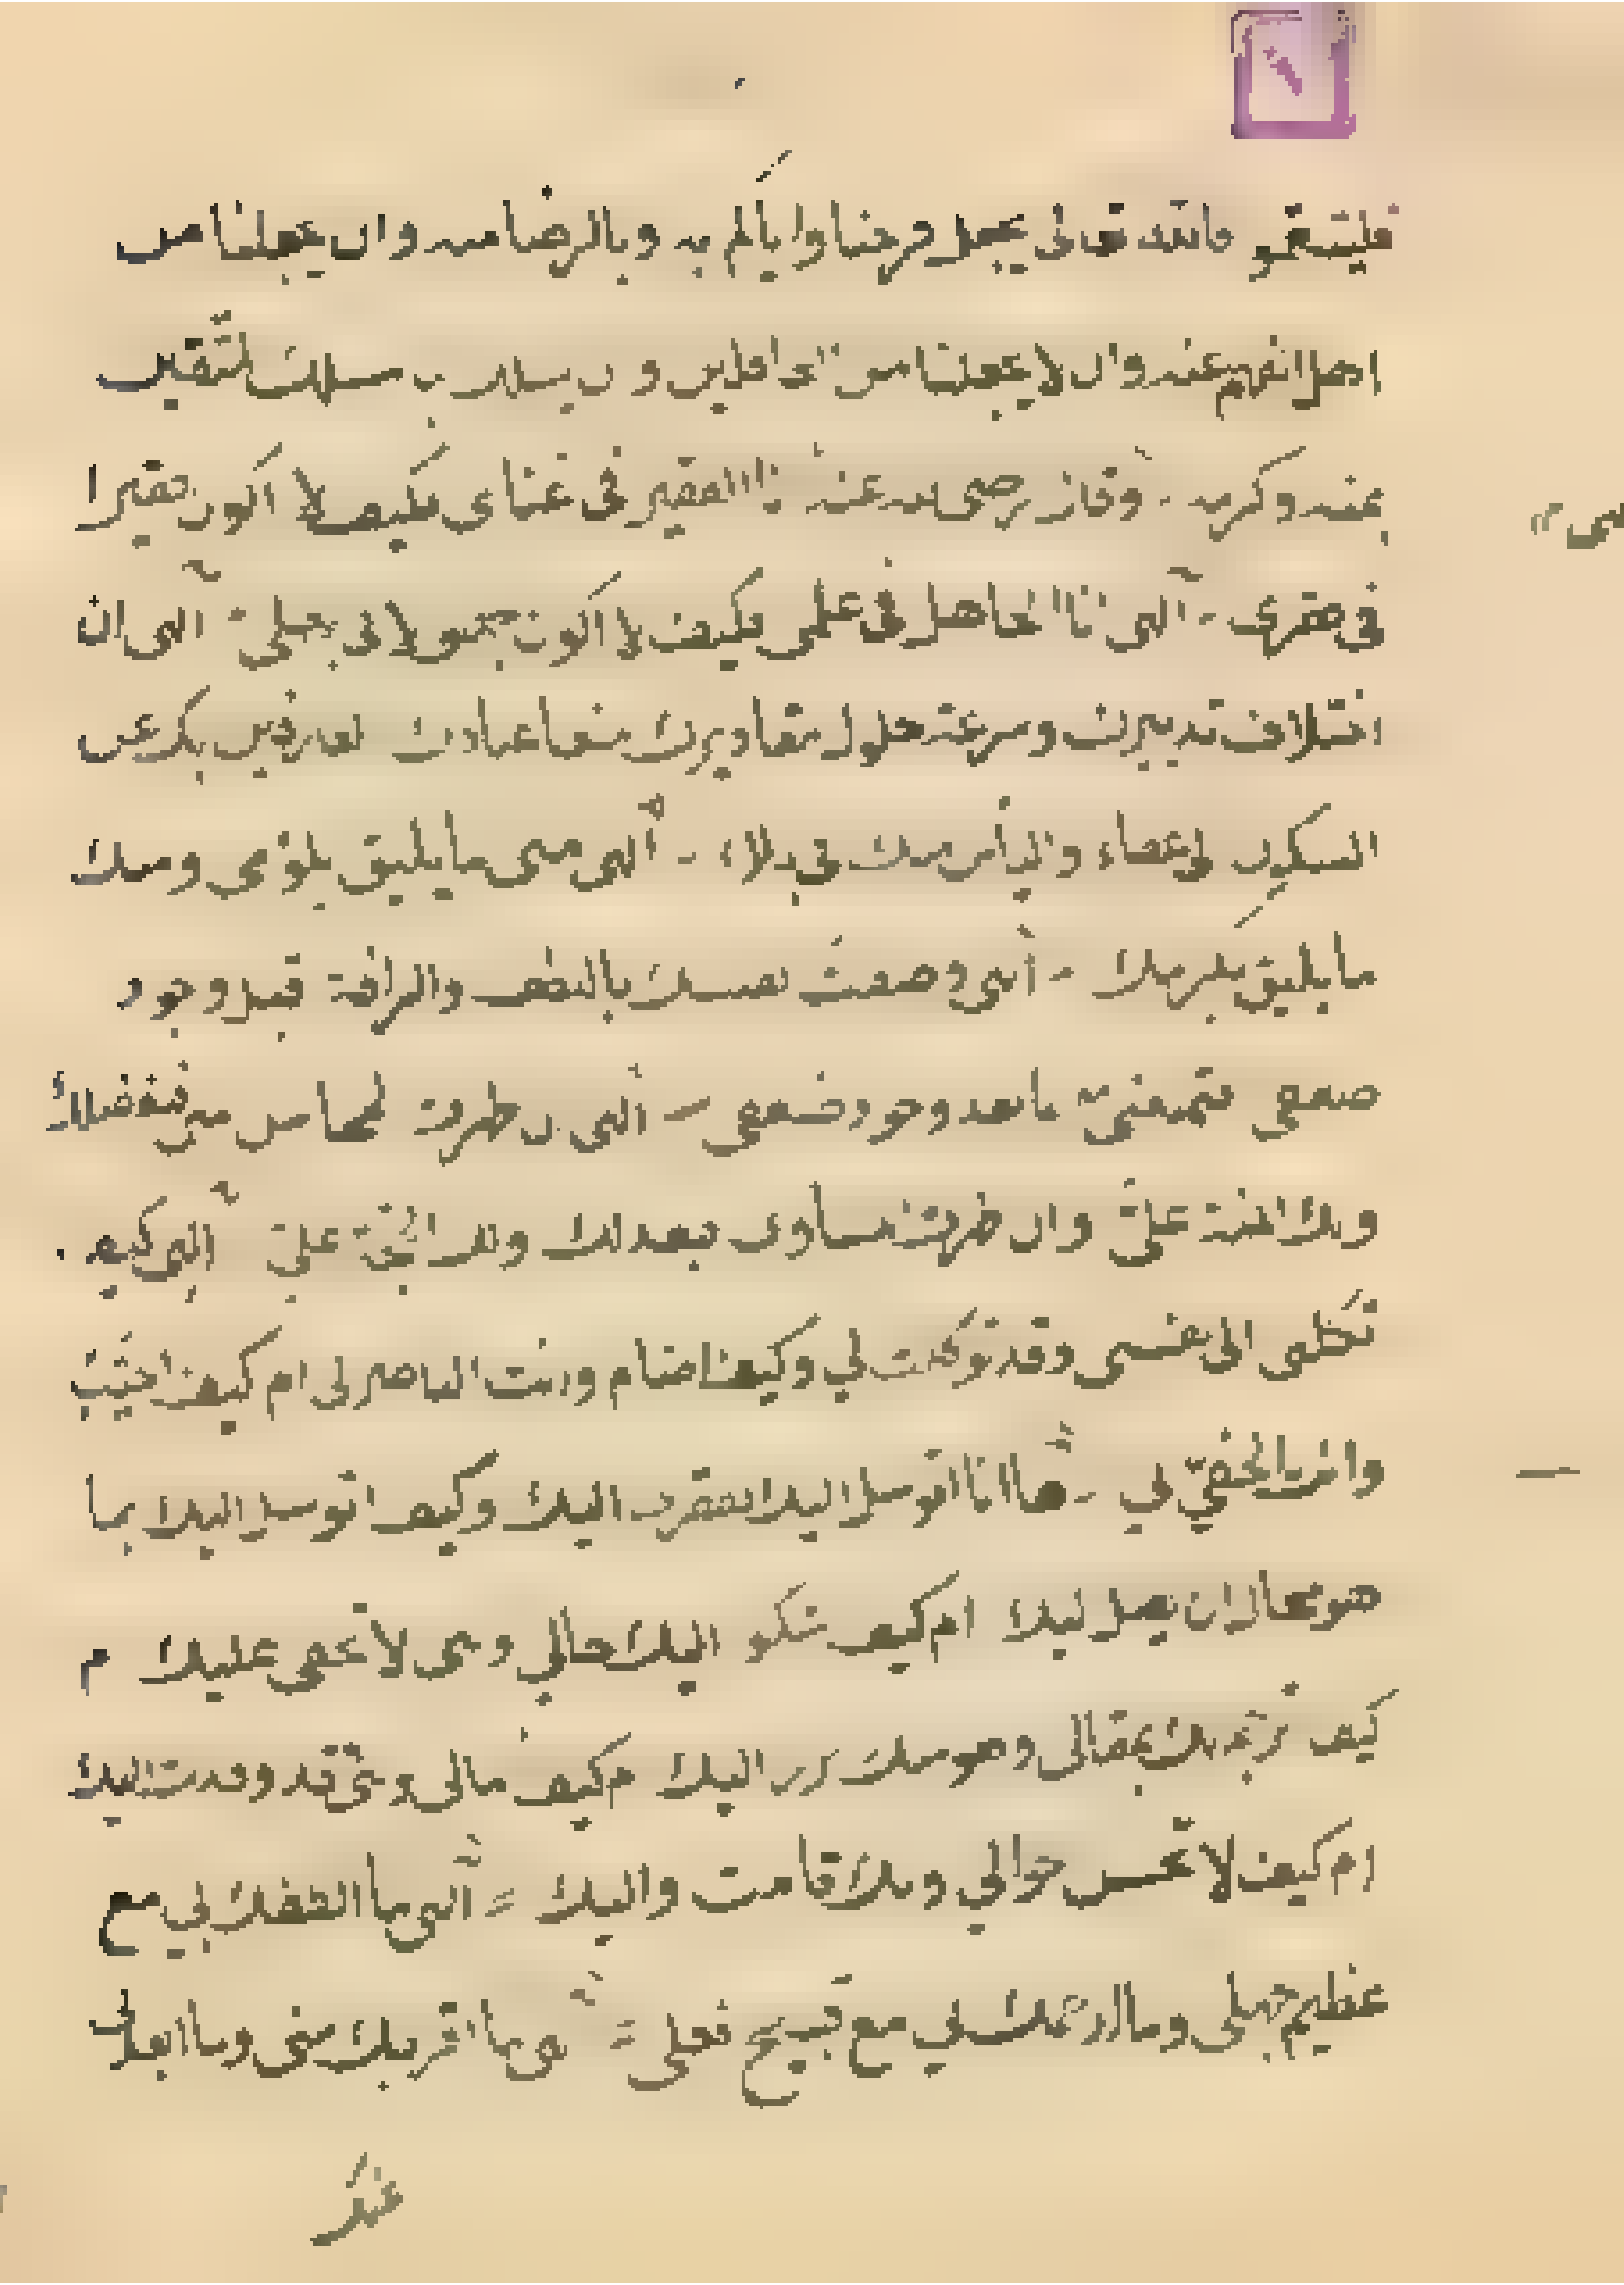 فالله تعالى يجعل فرحنا واياكم به وبالرضا منه وان يجعلنا من
اهل الفهم عنه وان لا يجعلنا من الغافلين وان يسلك بنا مسلك المتقين
بمنه وكرمه وقال رضي الله عنه انا الفقير في غناي فكيف لا اكون فقيرا
في فقري الهي انا الجاهل في علمي فكيف لا اكون جهولا في جهلي الهي ان
اختلاف تدبيرك وسرعة حلول مقاديرك منعا عبادك العارفين بك عن
السكون الى عطاء واليأس منك في بلاء الهي مني ما يليق بلؤمي ومنك
ما يليق بكرمك الهي وصفت نفسك باللطف والرافة قبل وجود
ضعفي افتمنعني منهما بعد وجود ضعفي الهي ان ظهرت المحاسن مني فبفضلك
ولك المنة عليّ وان ظهرت المساوي فبعدلك ولك الحجة عليّ الهي كيف
تكلني الى نفسي وقد توكلت لي وكيف اضام وانت الناصر لي ام كيف اخيب
وانت الحفيّ لي ها انا اتوسل اليك بفقري اليك وكيف اتوسل اليك بما
هو محال ان يصل اليك ام كيف اشكو اليك حالي وهي لا تخفى عليك ام
كيف اترجم لك بمقالي وهو منك برز اليك ام كيف مالي وهي قد وفدت اليك
ام كيف لا تحسن احوالي وبك قامت واليك الهي ما الطفك بي مع
عظيم جهلي وما ارحمك بي مع قبيح فعلي الهي ما اقربك مني وما ابعدني
عنك